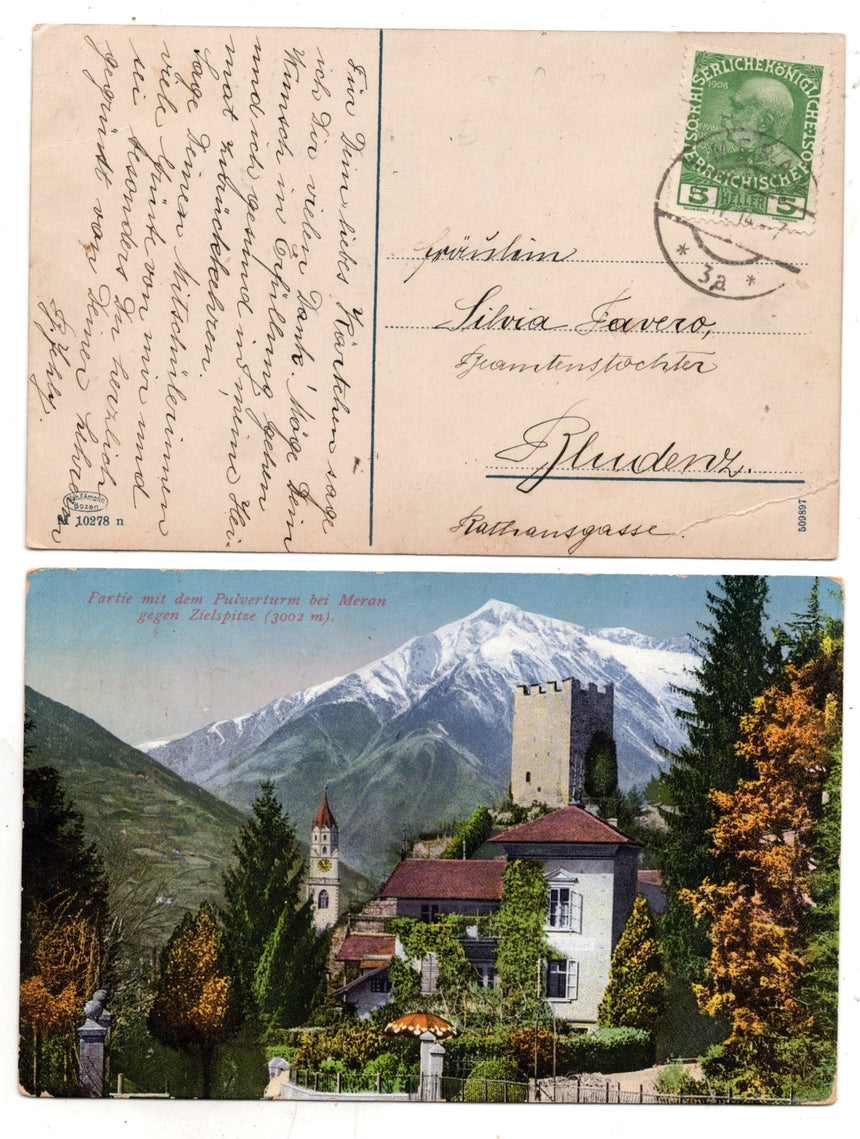 Für Dein liebes Kärtchen sage
ich Dir vielen Dank! Möge Dein
Wunsch in Erfüllung gehen
und ich gesund in meine Hei-
mat zurückkehren.
Sage Deinen Mitschülerinnen
viele Grüße von mir und
sei besonders Du herzlich
gegrüßt von Deiner Lehrerin
Joh. F. Amonn
Bozen
M 10278 n
KAISERLICHEKÖNIGLICHE
ÖSTERREICHISCHE POST
1908
5 HELLER 5
MERAN
14
* 3a *
Fräulein
Silvia Favero,
Beamtenstochter
Bludenz.
Rathausgasse.
509897
Partie mit dem Pulverturm bei Meran
gegen Zielspitze (3002 m).